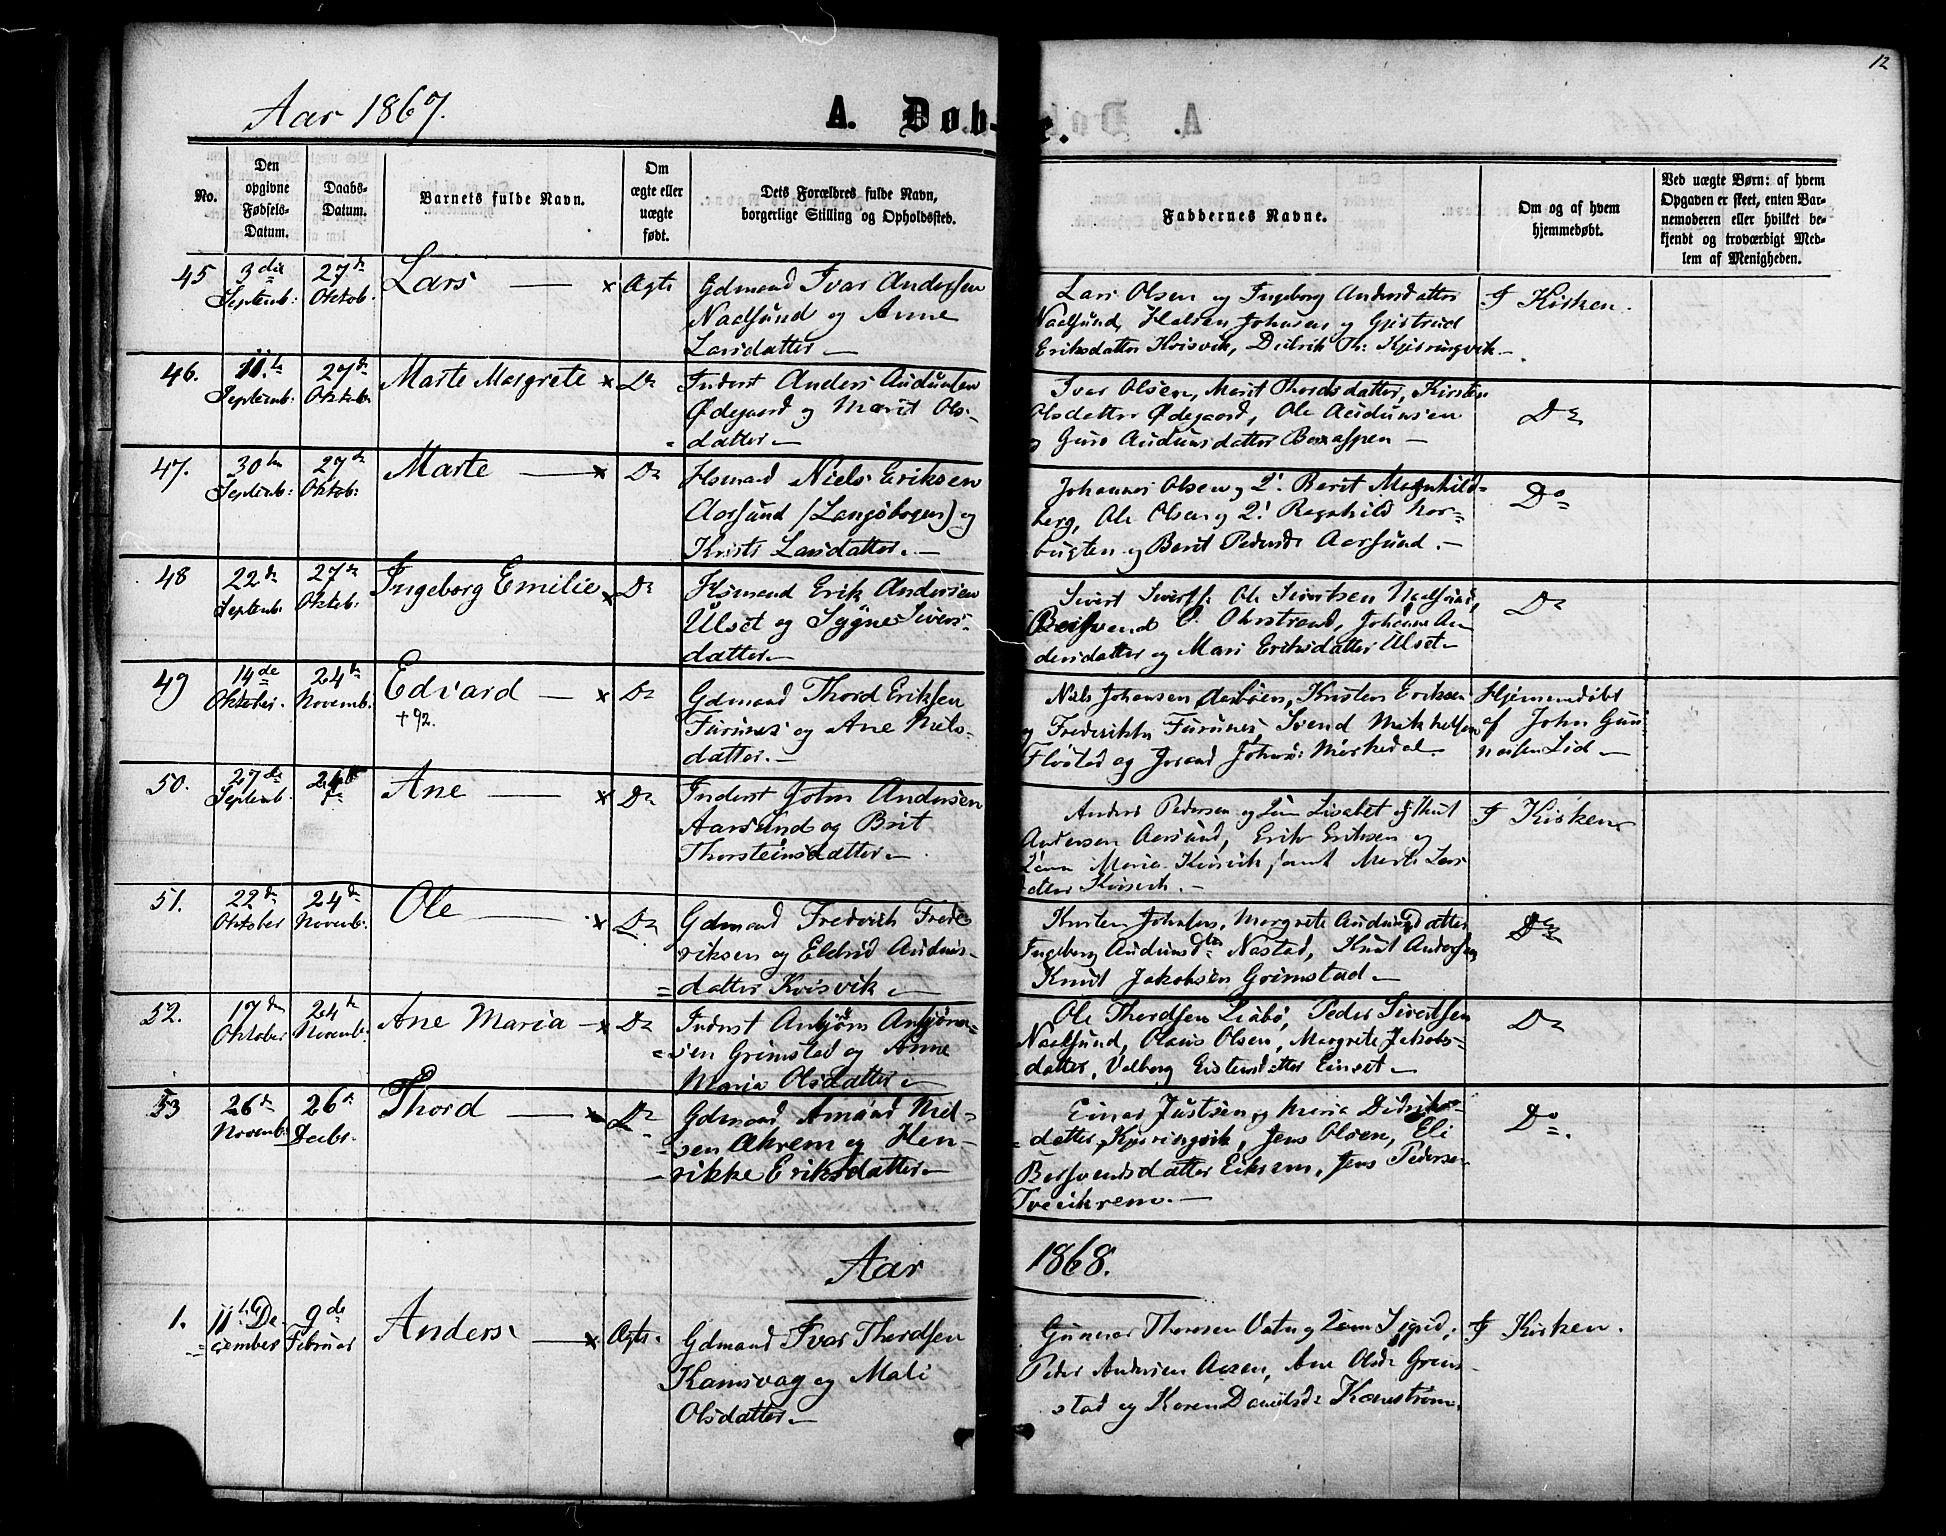 12
Aar 1867.
A. Døb-
te.
No.
Den
opgivne
Fødsels-
Datum.
Daabs-
Datum.
Barnets fulde Navn.
Om
ægte eller
uægte
født.
Dets Forældres fulde Navn,
borgerlige Stilling og Opholdssted.
Faddernes Navne.
Om og af hvem
hjemmedøbt.
Ved uægte Børn: af hvem
Opgaven er skeet, enten Bar-
nemoderen eller hvilket be-
kjendt og troværdigt Med-
lem af Menigheden.
45
3die
Septemb:
27de
Oktob.
Lars
Ægte
Gdmand Ivar Andersen
Nadsund og Anne
Larsdatter
Lars Olsen og Ingeborg Andersdatter
Nadsund, Halsten Johnsen og Gjertrud
Eriksdatter Kvisvik, Didrik Th: Kjøringvik
I Kirken.
46.
11te
Septemb:
27de
Oktob:
Marte Margrete
Do
Inderst Anders Audunsen
Ødegaard og Marit Ols-
datter
Ivar Olsen, Marit Thordsdatter, Kirsten
Olsdatter Ødegaard, Ole Audunsen
og Guro Audunsdatter
Do
47.
30te
Septemb:
27de
Oktob:
Marte
Do
Hsmand Niels Eriksen
Aarsund (Langøbogen) og
Kristi Larsdatter.
Johannes Olsen og Berit Magnhild-
berg, Ole Olsen og Ragnhild Nor-
bugten og Berit Pedersdr Aarsund.
Do
48
22de
Septemb.
27de
Oktob:
Ingeborg Emilie
Do
Hsmand Erik Andersen
Ulset og Sygne Sivers-
datter
Sivert Ole Sivertsen Nadsund,
Johanna An
dersdatter og Mari Eriksdatter Ulset
Do
49
14de
Oktober.
24de
Novemb.
Edvard
+92.
Do
Gdmand Thord Eriksen
Furunes og Ane Niels-
datter.
Niels Johansen Aasbøen, Kristen Eriksen
og Frederikke Furunes, Svend Mikkelsen
Fløstad og Johns: Mørkedal
Hjemmedøbt
af John Gun
nersen Lid
50.
27de
Septemb.
24de
Ane
Do
Inderst John Andersen
Aarsund og Brit
Thorsteinsdatter
Anders Pedersen og Lisabet og Knut
Andersen Aarsund, Erik Eriksen og
Maria Kvisvik samt Marte Lars
datter Kvisvik.
I Kirken
51.
22de
Oktober
24de
Novemb:
Ole
Do
Gdmand Fredrich Frede
riksen og Eldrid Auduns-
datter Kvisvik
Kristen Johnsen, Margrete Audunsdatter
Ingeborg Audunsdtr Nastad, Knut Andersen
Knut Jakobsen Grimstad
Do
52.
17de
Oktober
24de
Novemb:
Ane Maria
Do
Inderst Anbjørn Anbjørn-
sen Grimstad og Anne
Maria Olsdatter
Ole Thordsen Leabø, Peder Sivertsen
Nadsund, Olaus Olsen, Margrete Jakobs-
datter, Valborg Eistensdatter Einset
Do
53
26de
Novemb:
26de
Decbr.
Thord
Do
Gdmand Amund Niel-
sen Akrem og Hen-
rikke Eriksdatter
Einar Justsen og Maria Didriks-
datter Kjøringvik, Jens Olsen, Eli
Bersvendsdatter Eikrem, Jens Pedersen
Tveeikrem.
Do.
Aar
1868.
1.
11te De-
cember
9de
Februar
Anders
Ægte.
Gdmand Ivar Thordsen
Kamsvaag og Mali
Olsdatter
Gunner Thoresen Vatn og Sigrid,
Peder Andersen Aasen, Ane Olsdr Grim-
stad og Karen Danielsdr Kanestrøm.
I Kirken.